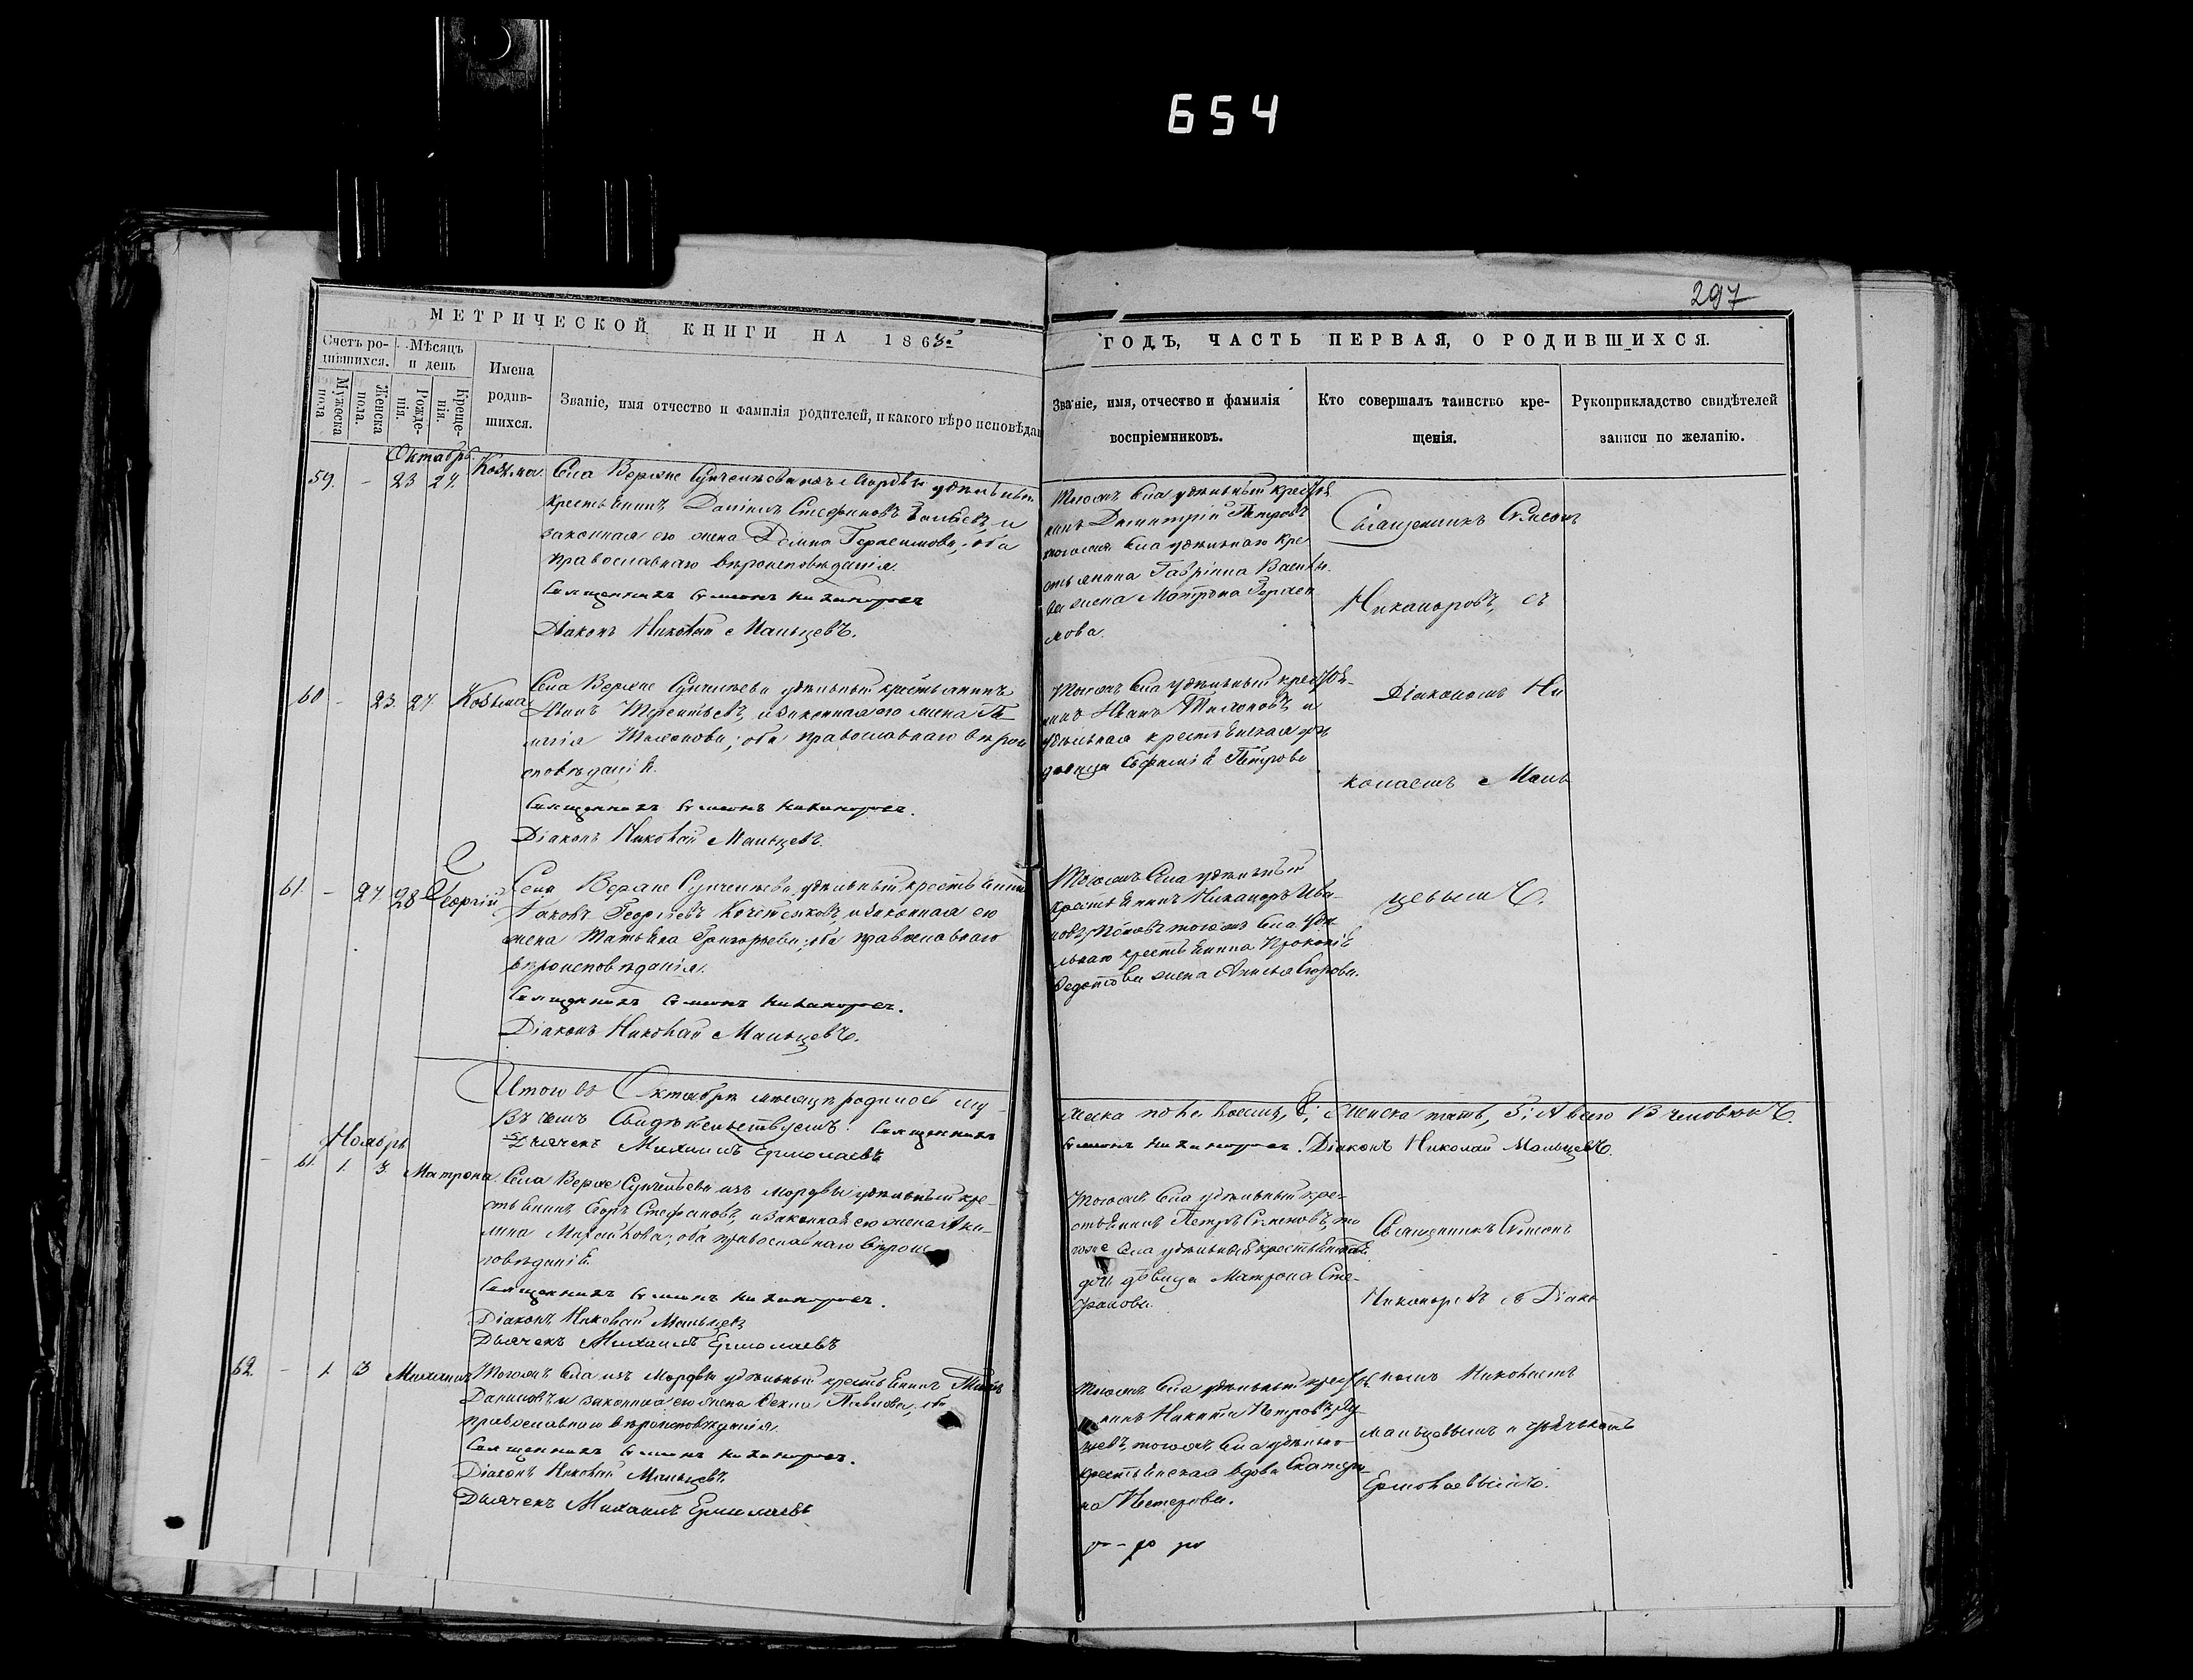 654
297
МЕТРИЧЕСКОЙ КНИГИ НА 1863й
ГОДЪ, ЧАСТЬ ПЕРВАЯ, О РОДИВШИХСЯ.
Счетъ ро-
дившихся.
Мужеска
пола
Женска
пола.
Мѣсяцъ
и день
Рожде-
нія.
Креще-
нія.
Имена
родив-
шихся.
Званіе, имя отчество и фамилія родителей, и какого вѣроисповѣдан
Званіе, имя, отчество и фамилія
воспріемниковъ.
Кто совершалъ таинство кре-
щенія.
Рукоприкладство свидѣтелей
записи по желанію.
Октябрь.
59. - 23 24. Козьма.
Села Верхне изъ Мордвы удѣльный
крестьянинъ Даніилъ Стефановъ и
законная его жена Домна Герасимова, оба
православнаго вѣроисповѣданія.
Священникъ Симеонъ Никаноровъ
Діаконъ Николай Мальцевъ.
Тогожъ Села удѣльный крестья
нинъ Димитрій Петровъ
тогожъ Села удѣльнаго кре
стьянина Гавріила
жена Матрона Гераси
мова.
Священникъ Симеонъ
Никаноровъ, съ
60 - 23. 27. Козьма
Села Верхне удѣльный крестьянинъ
Терентьевъ, и законная его жена
Тихонова; оба православнаго вѣрои
сповѣданія.
Священникъ Симеонъ Никаноровъ.
Діаконъ Николай Мальцевъ.
Тогожъ Села удѣльный крестья-
нинъ Иванъ Тихоновъ, и
удѣльная крестьянская дѣ
вица Евфимія Петрова
Діакономъ Ни
колаемъ Маль
61. - 27. 28 Георгій
Села Верхне удѣльный крестьянинъ
Яковъ Георгіевъ и законная его
жена Татьяна Григорьева; оба православнаго
вѣроисповѣданія.
Священникъ Симеонъ Никаноровъ.
Діаконъ Николай Мальцевъ.
Тогожъ Села удѣльный
крестьянинъ Никаноръ Ива
новъ тогожъ Села удѣ
льнаго крестьянина Прокопія
Ѳедотова жена Анисья Егорова.
цевымъ.
Итого въ Октябрѣ мѣсяцѣ родилось му-
жеска пола восемь, женска пять, а всего человѣкъ.
Въ чемъ Свидѣтельствуемъ: Священникъ
Симеонъ Никаноровъ. Діаконъ Николай Мальцевъ.
Дьячекъ Михаилъ Ермолаевъ
Ноябрь
- 61. 1. 3. Матрона.
Села Верхне изъ мордвы удѣльный кре-
стьянинъ Егоръ Стефановъ, и законная его жена Аки-
лина Михайлова; оба православнаго вѣроис
повѣданія.
Священникъ Симеонъ Никаноровъ.
Діаконъ Николай Мальцевъ
Дьячекъ Михаилъ Ермолаевъ
Тогожъ Села удѣльный кре-
стьянинъ Петръ Семеновъ, то
гоже Села удѣльная крестьянская
дѣвица Матрона Сте-
фанова.
Священникъ Симеонъ
Никаноровъ съ Діако
62. - 1 3 Михаилъ
Тогожъ Села изъ Мордвы удѣльный крестьянинъ
Даниловъ и законная его жена Ѳекла Павлова, оба
православнаго вѣроисповѣданія.
Священникъ Симеонъ Никаноровъ.
Діаконъ Николай Мальцевъ.
Дьячекъ Михаилъ Ермолаевъ
Тогожъ Села удѣльный крестья
нинъ Никита Петровъ
тогожъ Села удѣльно
крестьянская вдова Екатери
на Нестерова.
номъ Николаемъ
Мальцевымъ и дьячкомъ
Ермолаевымъ.